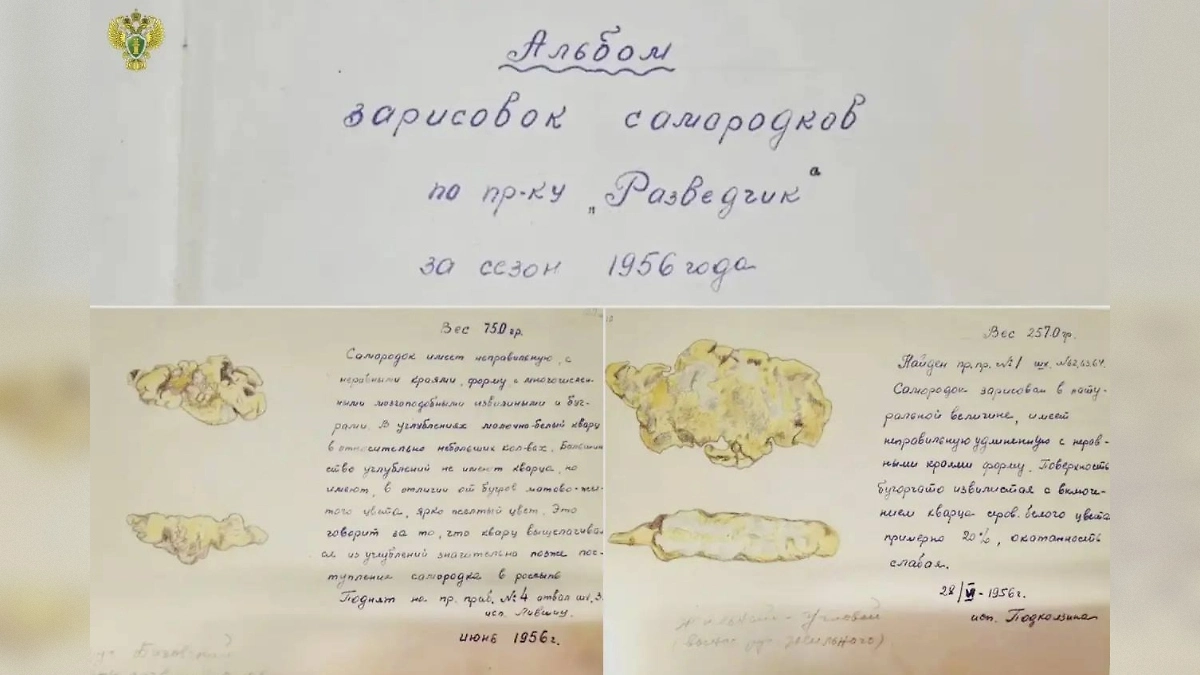 Альбом
зарисовок самородков
по пр-ку „Разведчик“
за сезон 1956 года
Вес 750 гр.
Самородок имеет неправильную, с
неравными краями, форму с многочислен-
ными мозгоподобными извилинами и буг-
рами. В углублениях молочно-белый кварц
в относительно небольших кол-вах. Большин
ство углублений не имеют кварца, но
имеют, в отличии от бугров матово-жел-
того цвета, ярко желтый цвет. Это
говорит за то, что кварц выщелачивал
ся из углублений значительно позже пос-
тупления самородка в россыпь
Поднят на пр. приб. №4 отвал шх. 3.
исп. Лившиц.
июнь 1956 г.
Вес 2570 гр.
Найден пр. пр. №1 шх. №62,63,64.
Самородок зарисован в нату-
ральной величине, имеет
неправильную удлиненную с неров-
ными краями форму. Поверхность
бугорчато извилистая с включе-
нием кварца серов. белого цвета
примерно 20%, окатанность
слабая.
28/VI - 1956 г.
исп. Подколзина